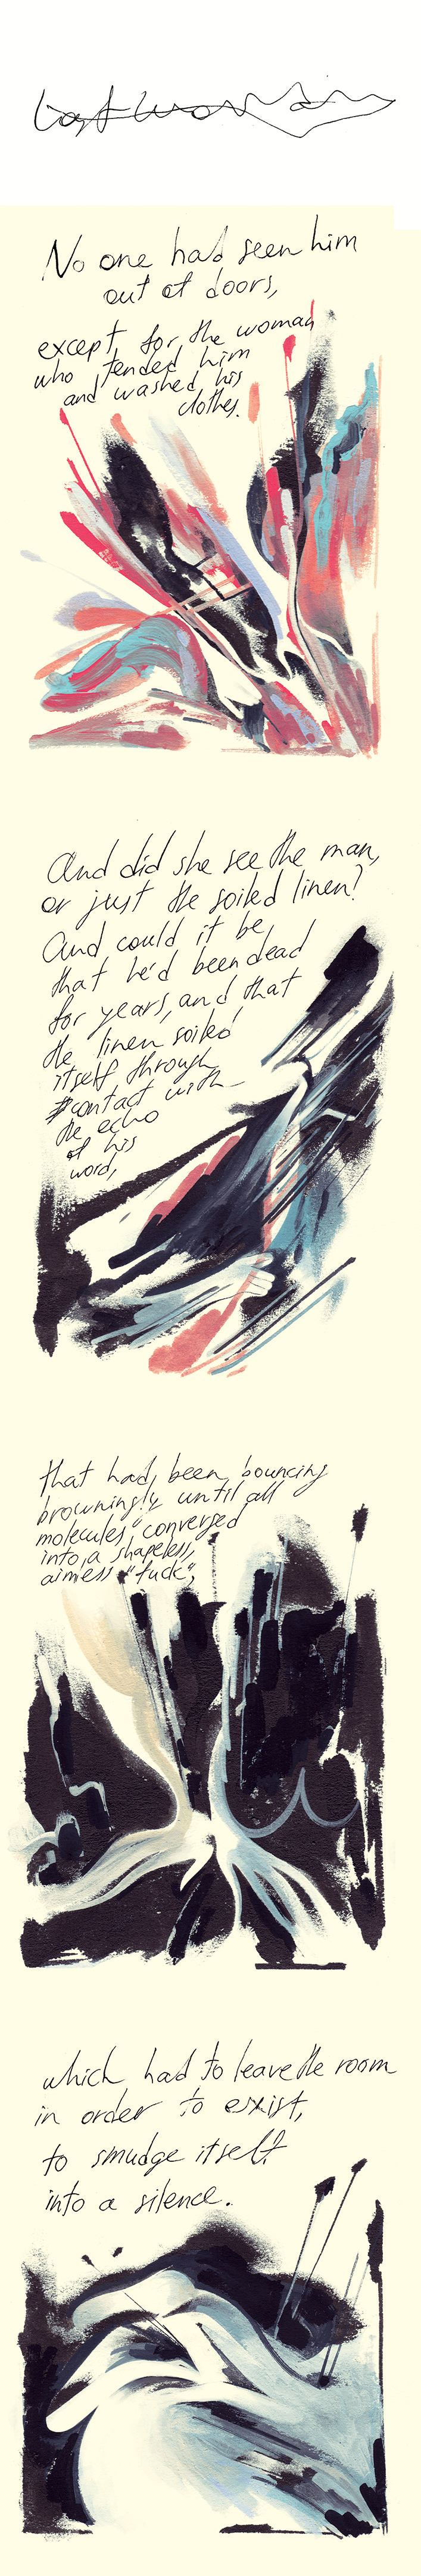 last woman
No one had seen him
out of doors,
except, for the woman
who tended him
and washed his
clothes.
And did she see the man,
or just the soiled linen?
And could it be,
that he'd been dead
for years, and that
the linen soiled
itself through
contact with
the echo
of his
word,
that had been bouncing
browningly until all
molecules converged
into a shapeless,
aimess "fuck",
which had to leave the room
in order to exist,
to smudge itself
into a silence.